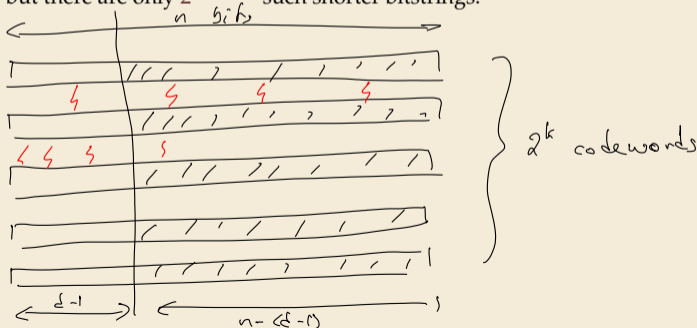 but there are only 2 such shorter bitstrings.
n bits
2^k codewords
d-1
n-(d-1)